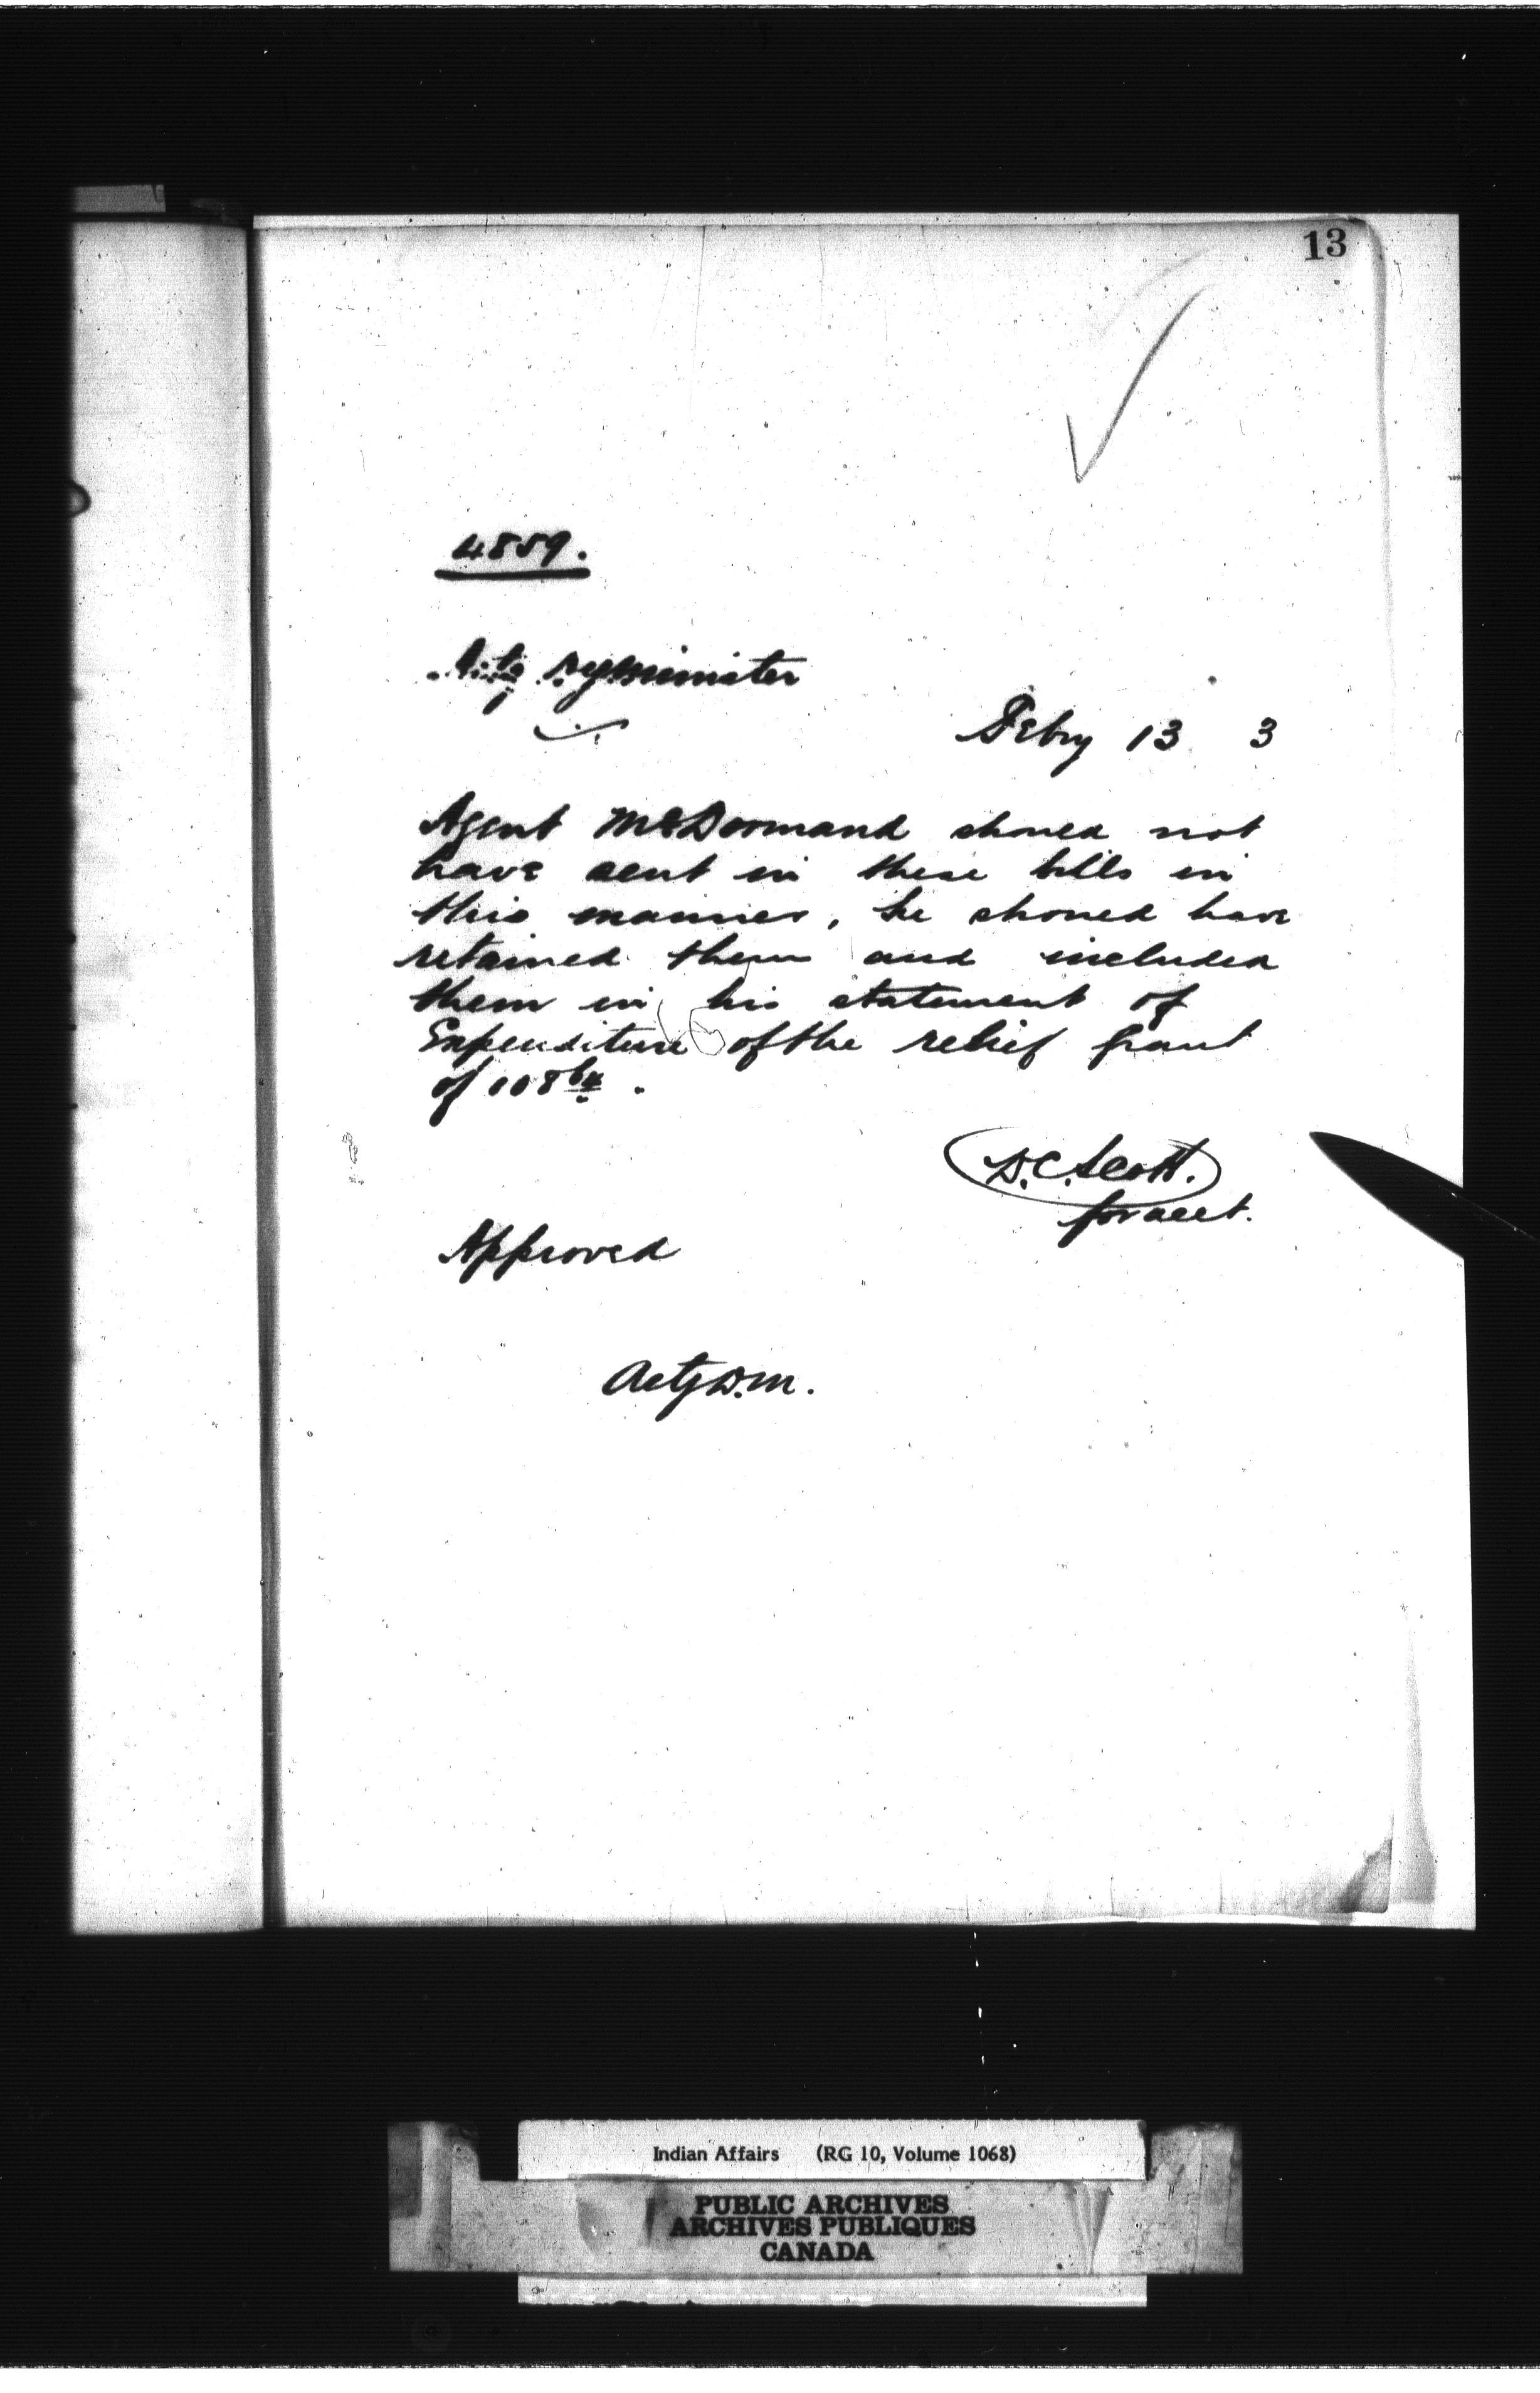 13
4859.
Actg Dy Minister
Febry 13 3
Agent McDormand should not
have sent in these bills in
this manner, he should have
retained them and included
them in his statement of
Expenditure of the relief grant
of 108
D.C. Scott.
for acct.
Approved
Actg D.M.
Indian Affairs (RG 10, Volume 1068)
PUBLIC ARCHIVES
ARCHIVES PUBLIQUES
CANADA